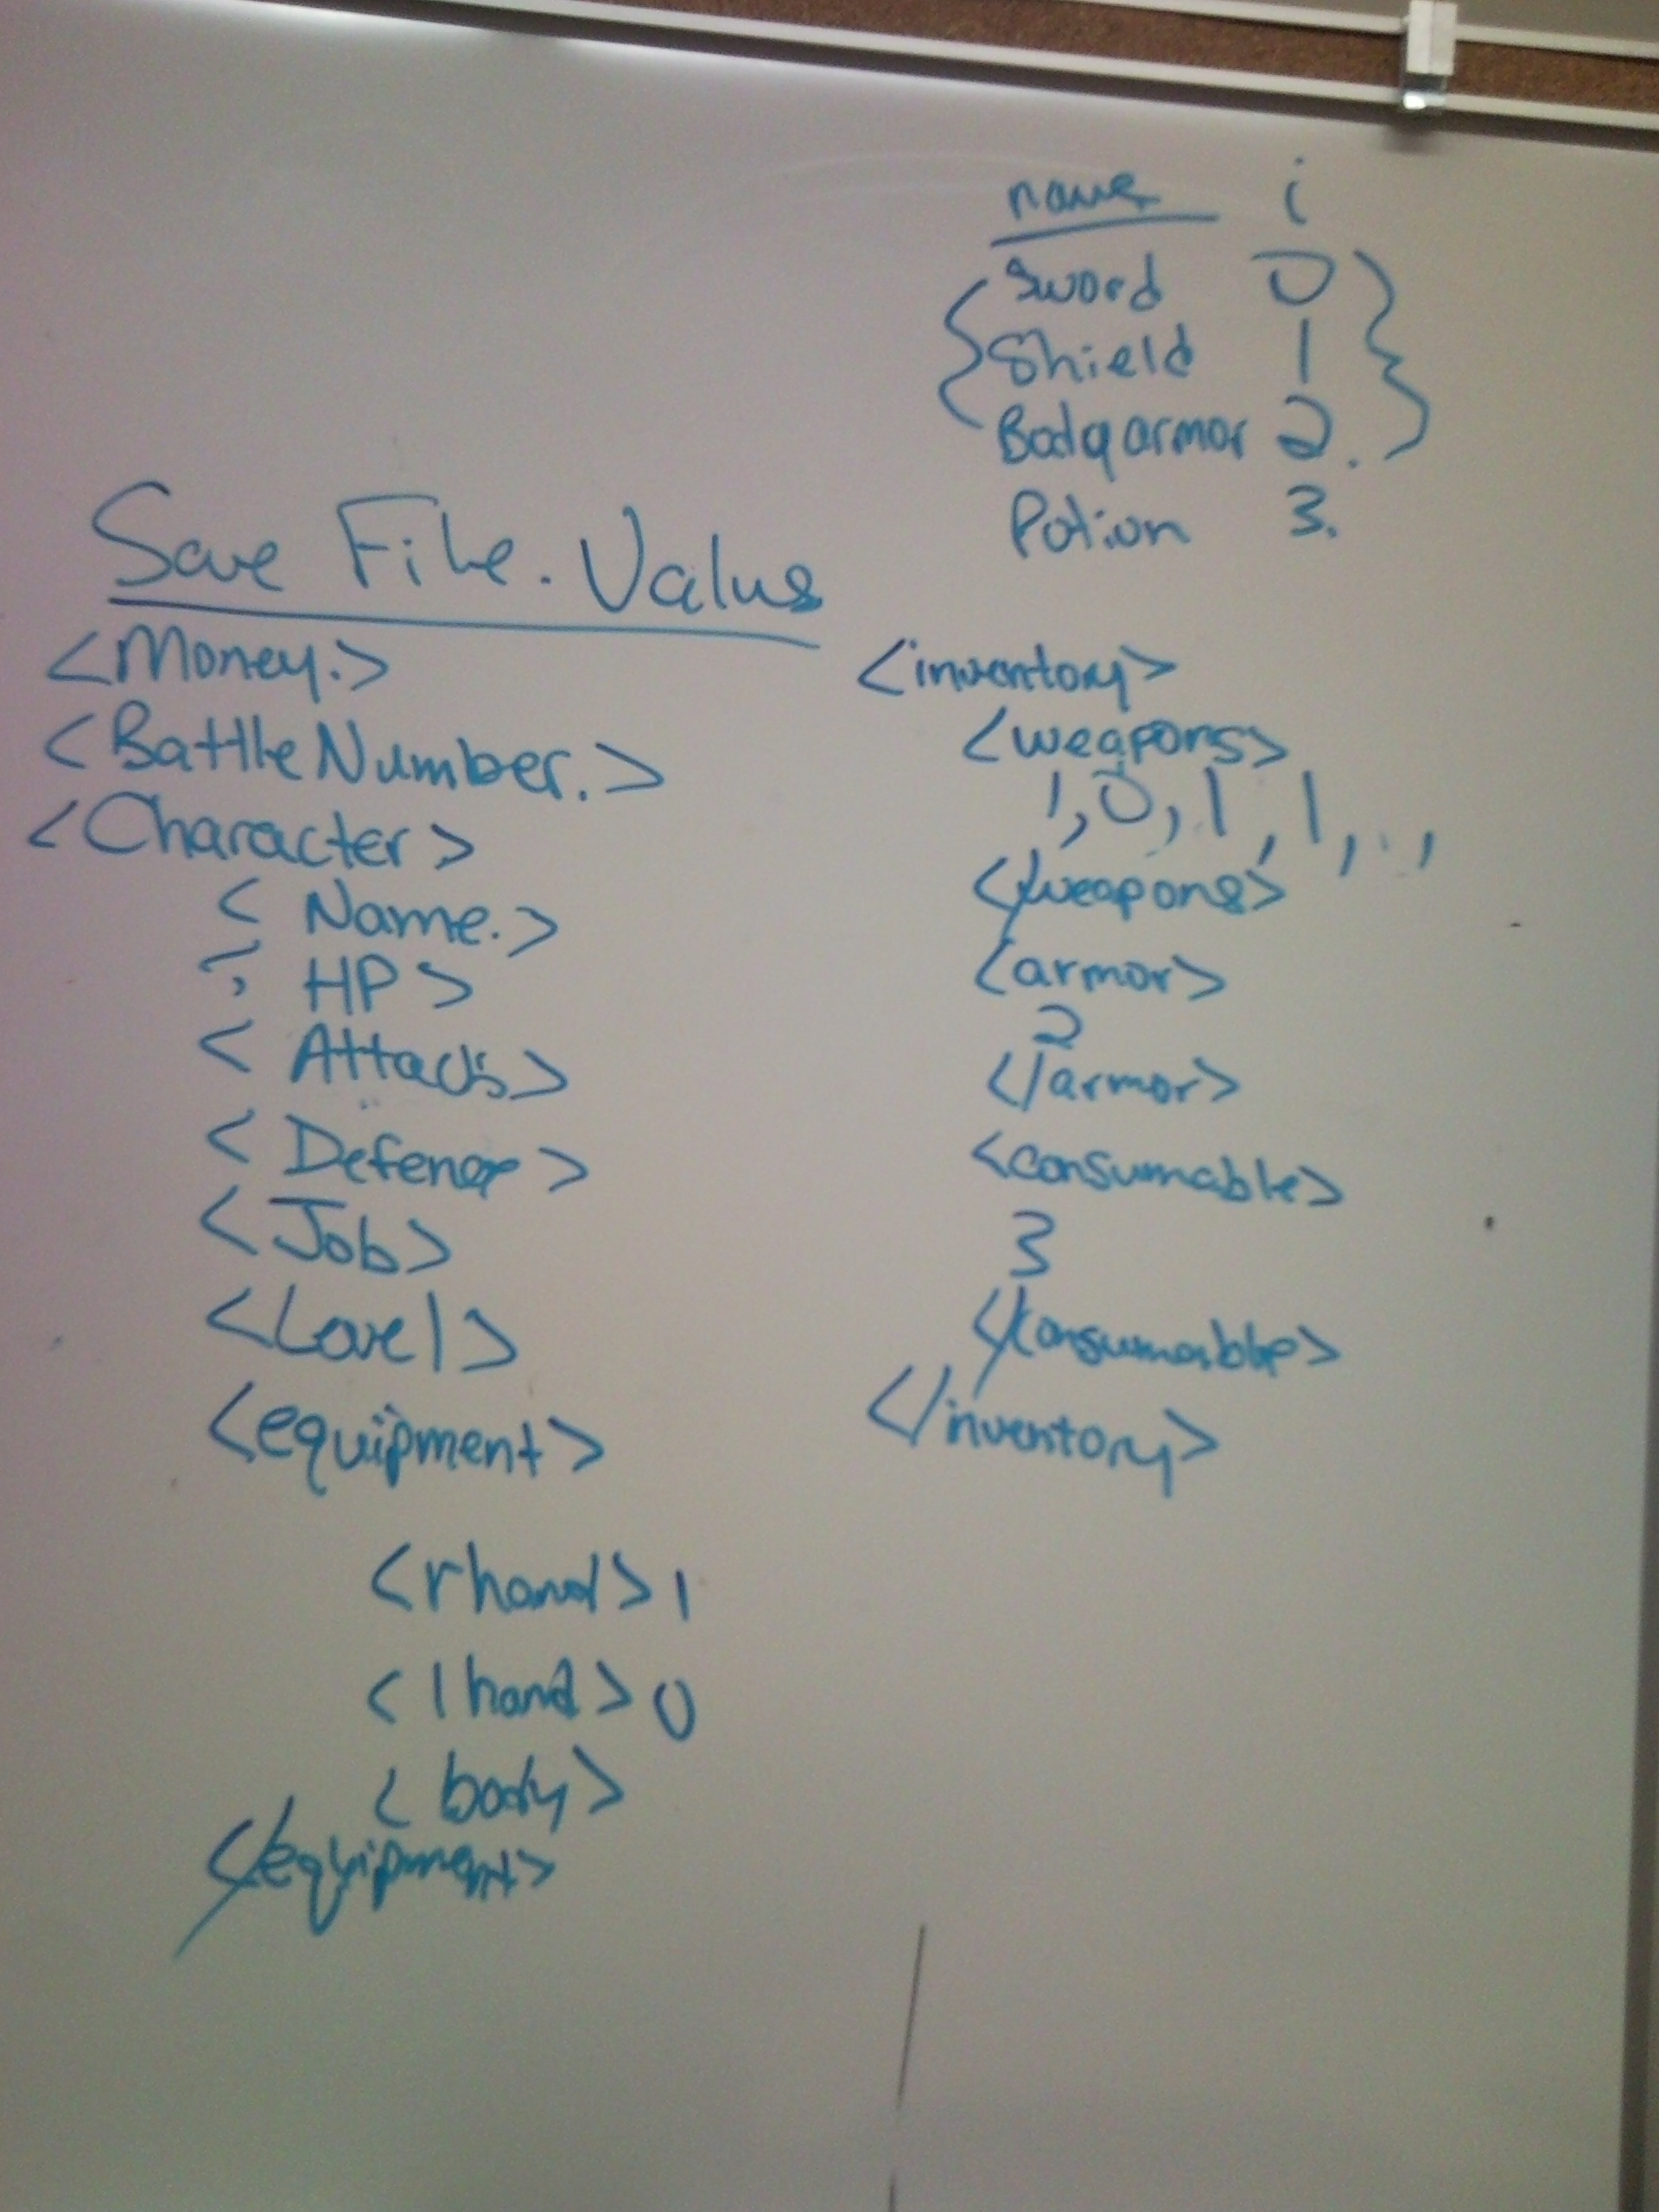 name i
Sword 0
Shield 1
Body armor 2.
Potion 3.
Save File. Values
<Money.>
<BattleNumber.>
<Character>
< Name.>
HP >
< Attack>
< Defense>
<Job>
<Level>
<equipment>
<rhand> 1
<lhand> 0
<body>
</equipment>
<inventory>
<weapons>
1, 0, 1, 1, . . ,
</weapons>
<armor>
2
</armor>
<consumable>
3
</consumable>
</inventory>